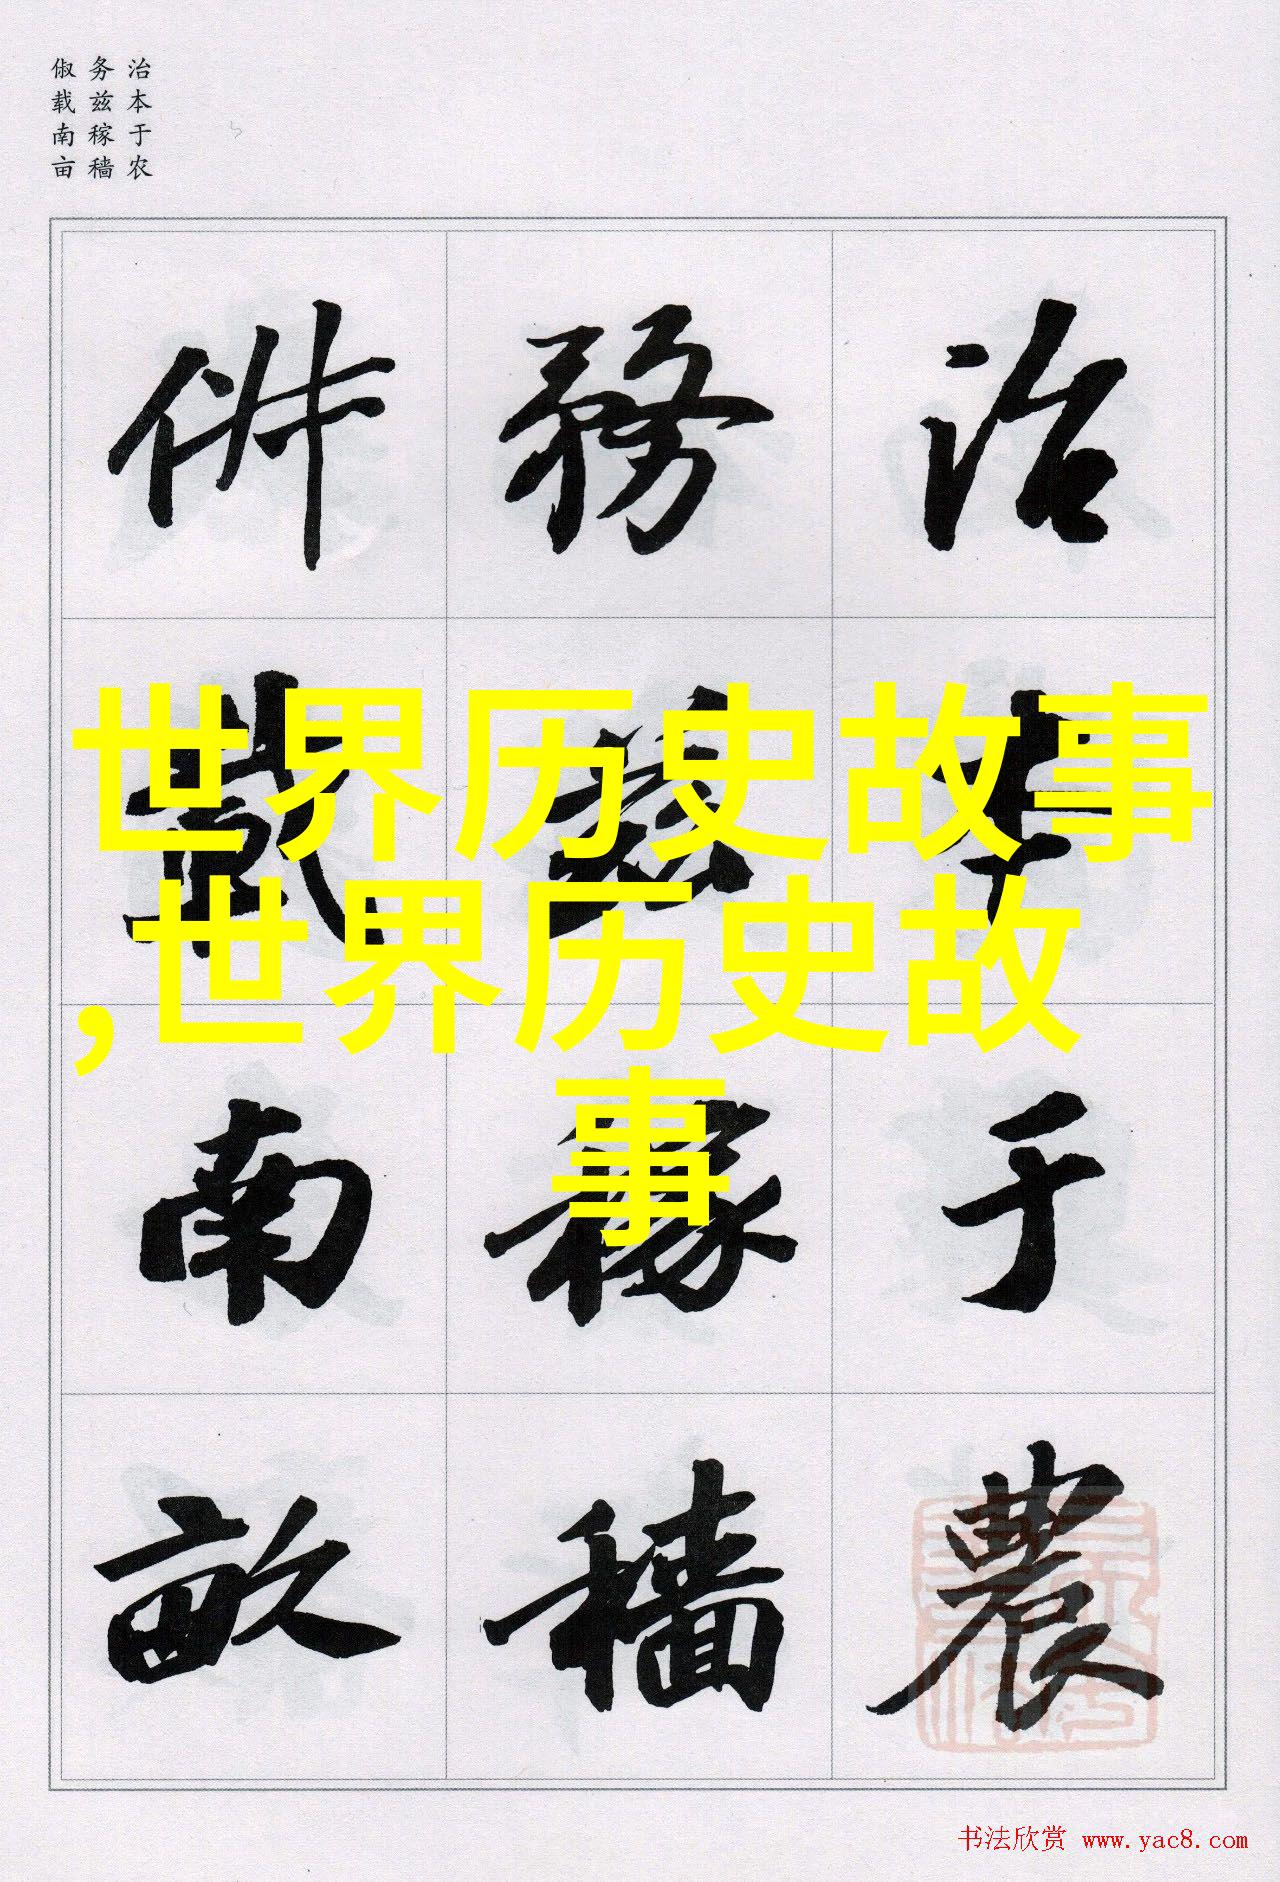 治本于农
务兹稼穑
俶载南亩
治本于農
務兹稼穡
俶載南畝
世界历史故事
,世界历史故
事
书法欣赏 www.yac8.com